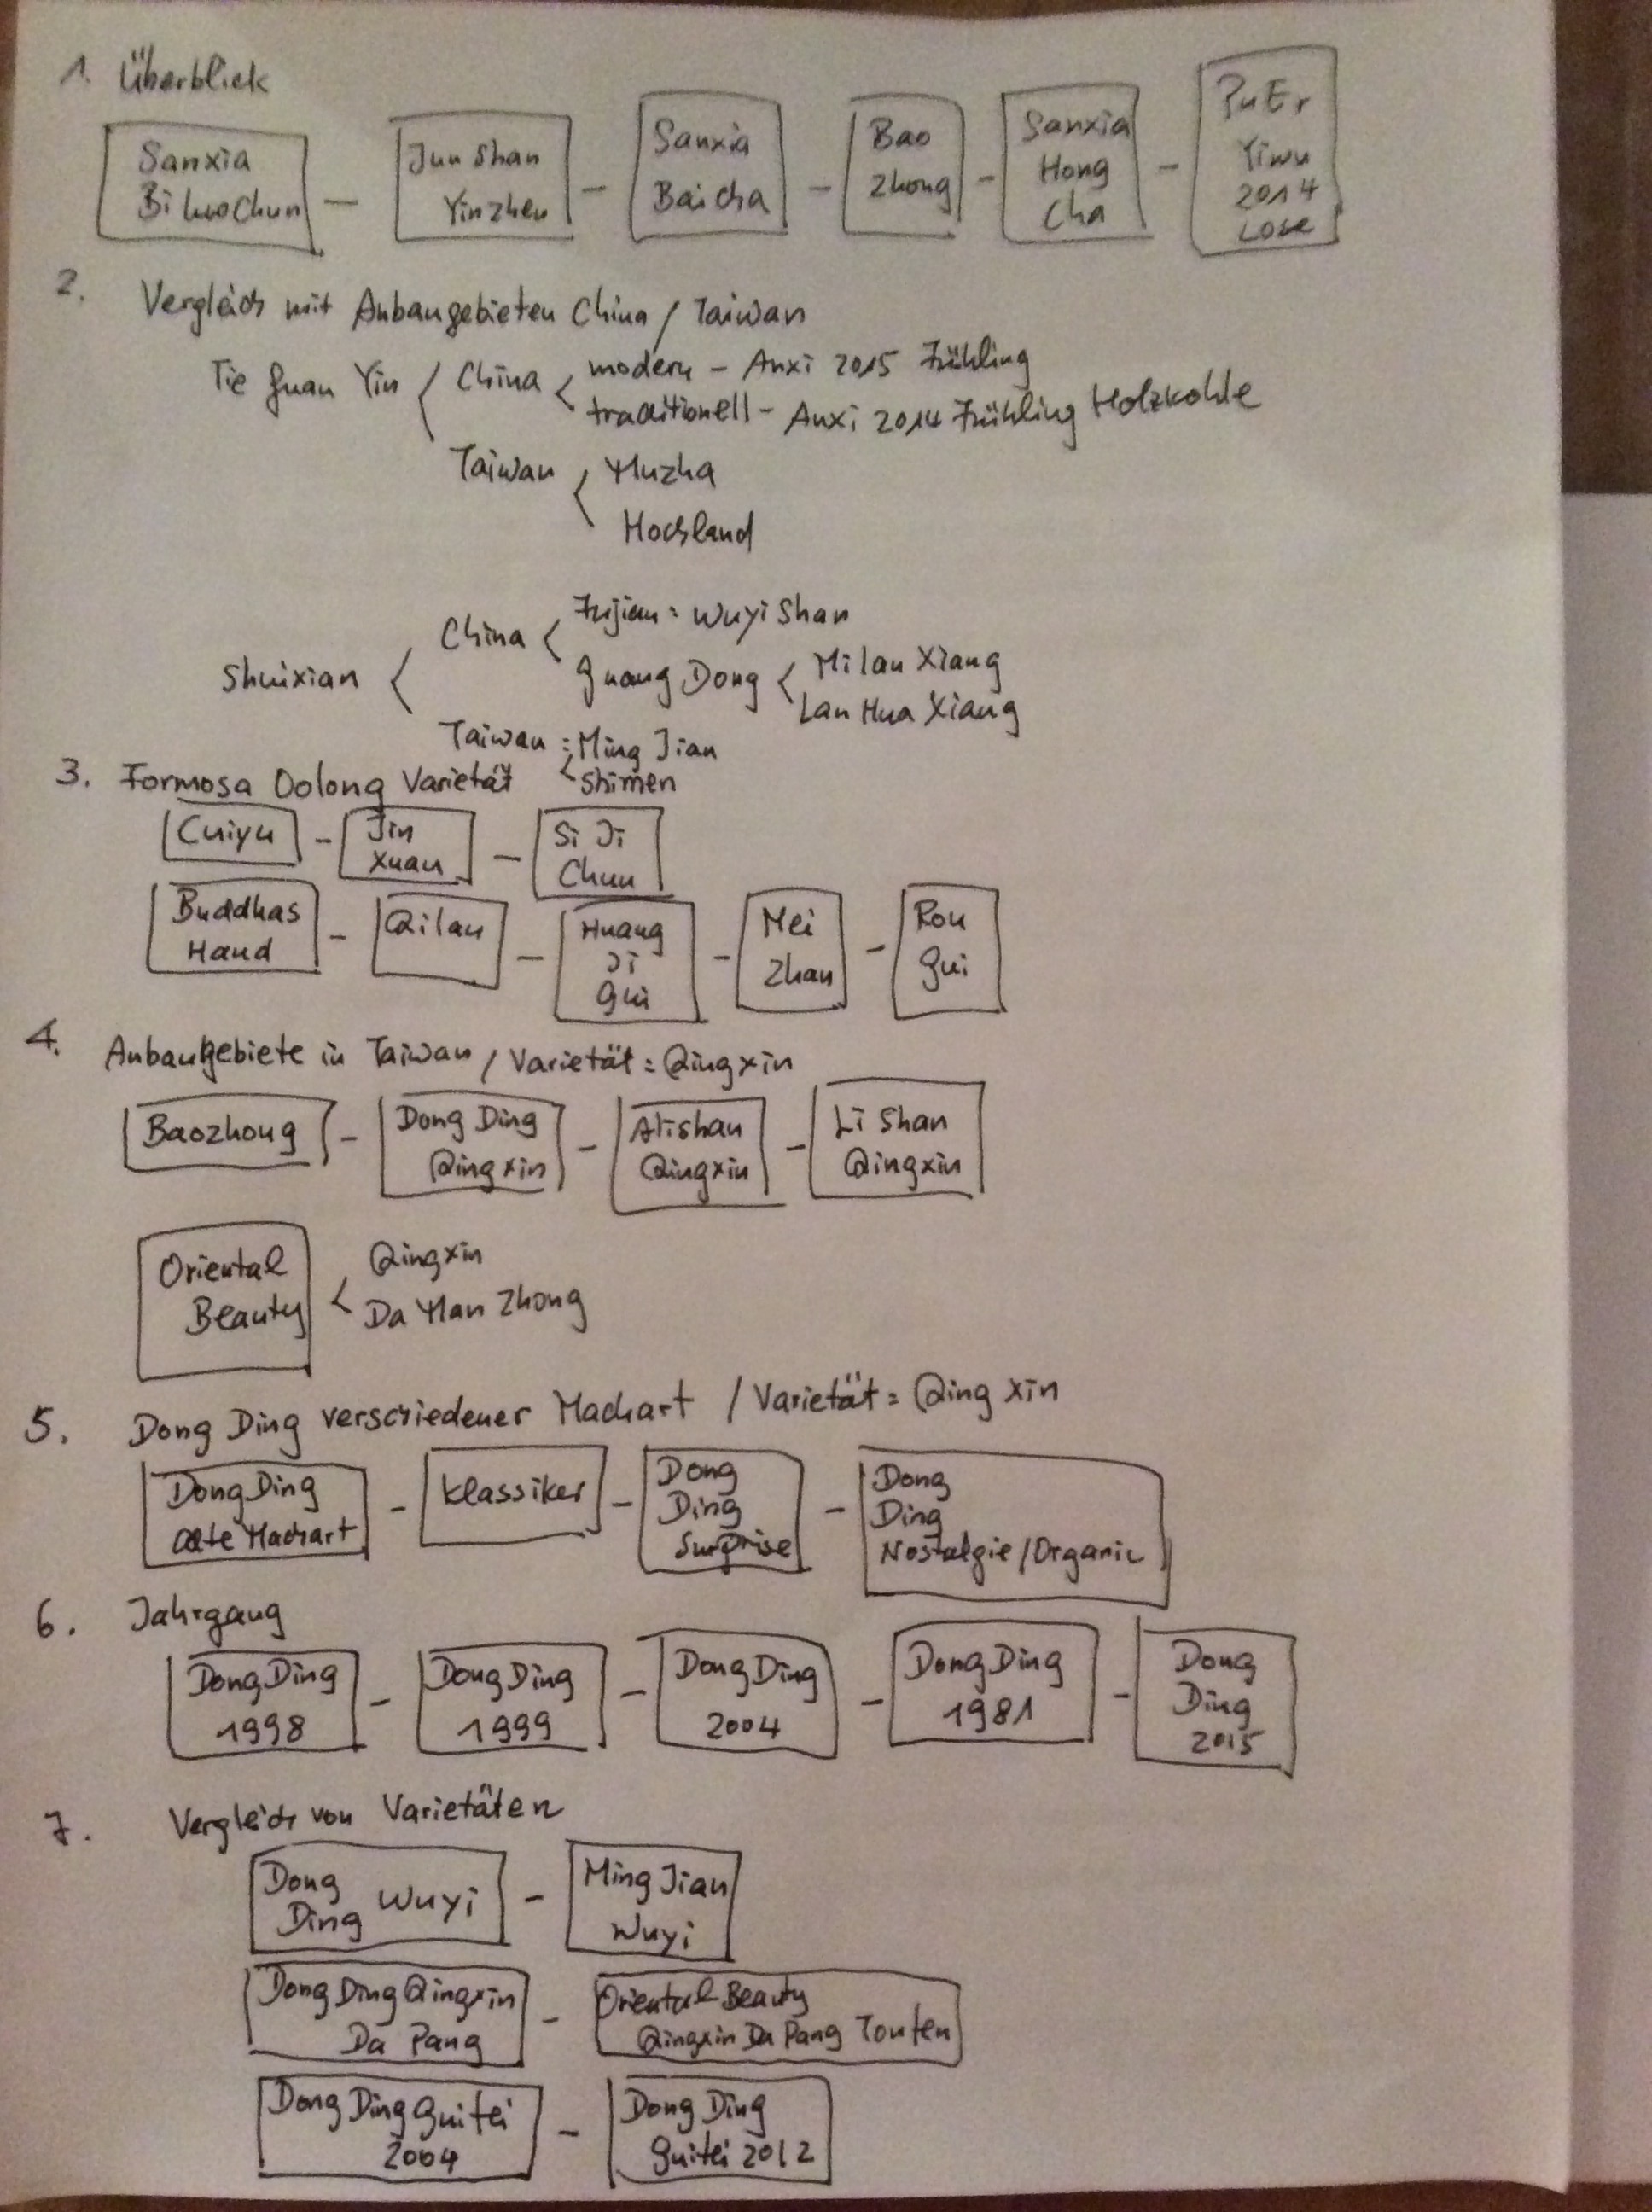 1. Überblick
Sanxia Biluochun – Jun Shan Yinzhen – Sanxia Baicha – Bao Zhong – Sanxia Hong Cha – PuEr Yiwu 2014 Lose
2. Vergleich mit Anbaugebieten China / Taiwan
Tie Guan Yin / China < modern – Anxi 2015 Frühling
traditionell – Anxi 2014 Frühling Holzkohle
Taiwan < Muzha
Hochland
Shuixian < China < Fujian = Wuyi Shan
Guang Dong < Milan Xiang
Lan Hua Xiang
Taiwan = Ming Jian
< Shimen
3. Formosa Oolong Varietät
Cuiyu – Jin Xuan – Si Ji Chun
Buddhas Hand – Qilan – Huang Ji Gui – Mei Zhan – Rou Gui
4. Anbaugebiete in Taiwan / Varietät = Qingxin
Baozhong – Dong Ding Qingxin – Alishan Qingxin – Li Shan Qingxin
Oriental Beauty < Qingxin
Da Man Zhong
5. Dong Ding verschiedener Machart / Varietät = Qing Xin
Dong Ding alte Machart – Klassiker – Dong Ding Surprise – Dong Ding Nostalgie / Organic
6. Jahrgang
Dong Ding 1998 – Dong Ding 1999 – Dong Ding 2004 – Dong Ding 1981 – Dong Ding 2015
7. Vergleich von Varietäten
Dong Ding Wuyi – Ming Jian Wuyi
Dong Ding Qingxin Da Pang – Oriental Beauty Qingxin Da Pang Toufen
Dong Ding Guifei 2004 – Dong Ding Guifei 2012